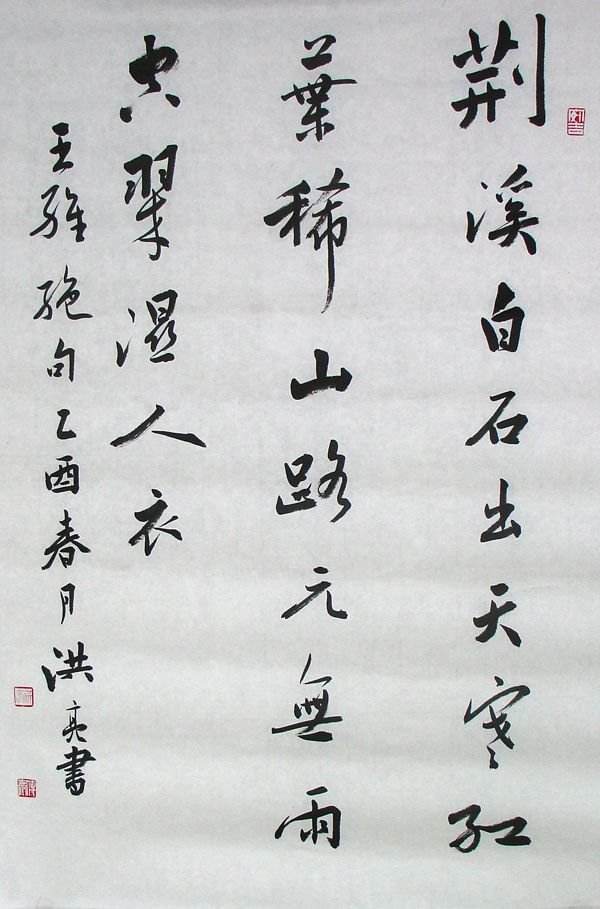 荆溪白石出天寒红
葉稀山路元無雨
空翠濕人衣
王維絶句乙酉春月洪亮書